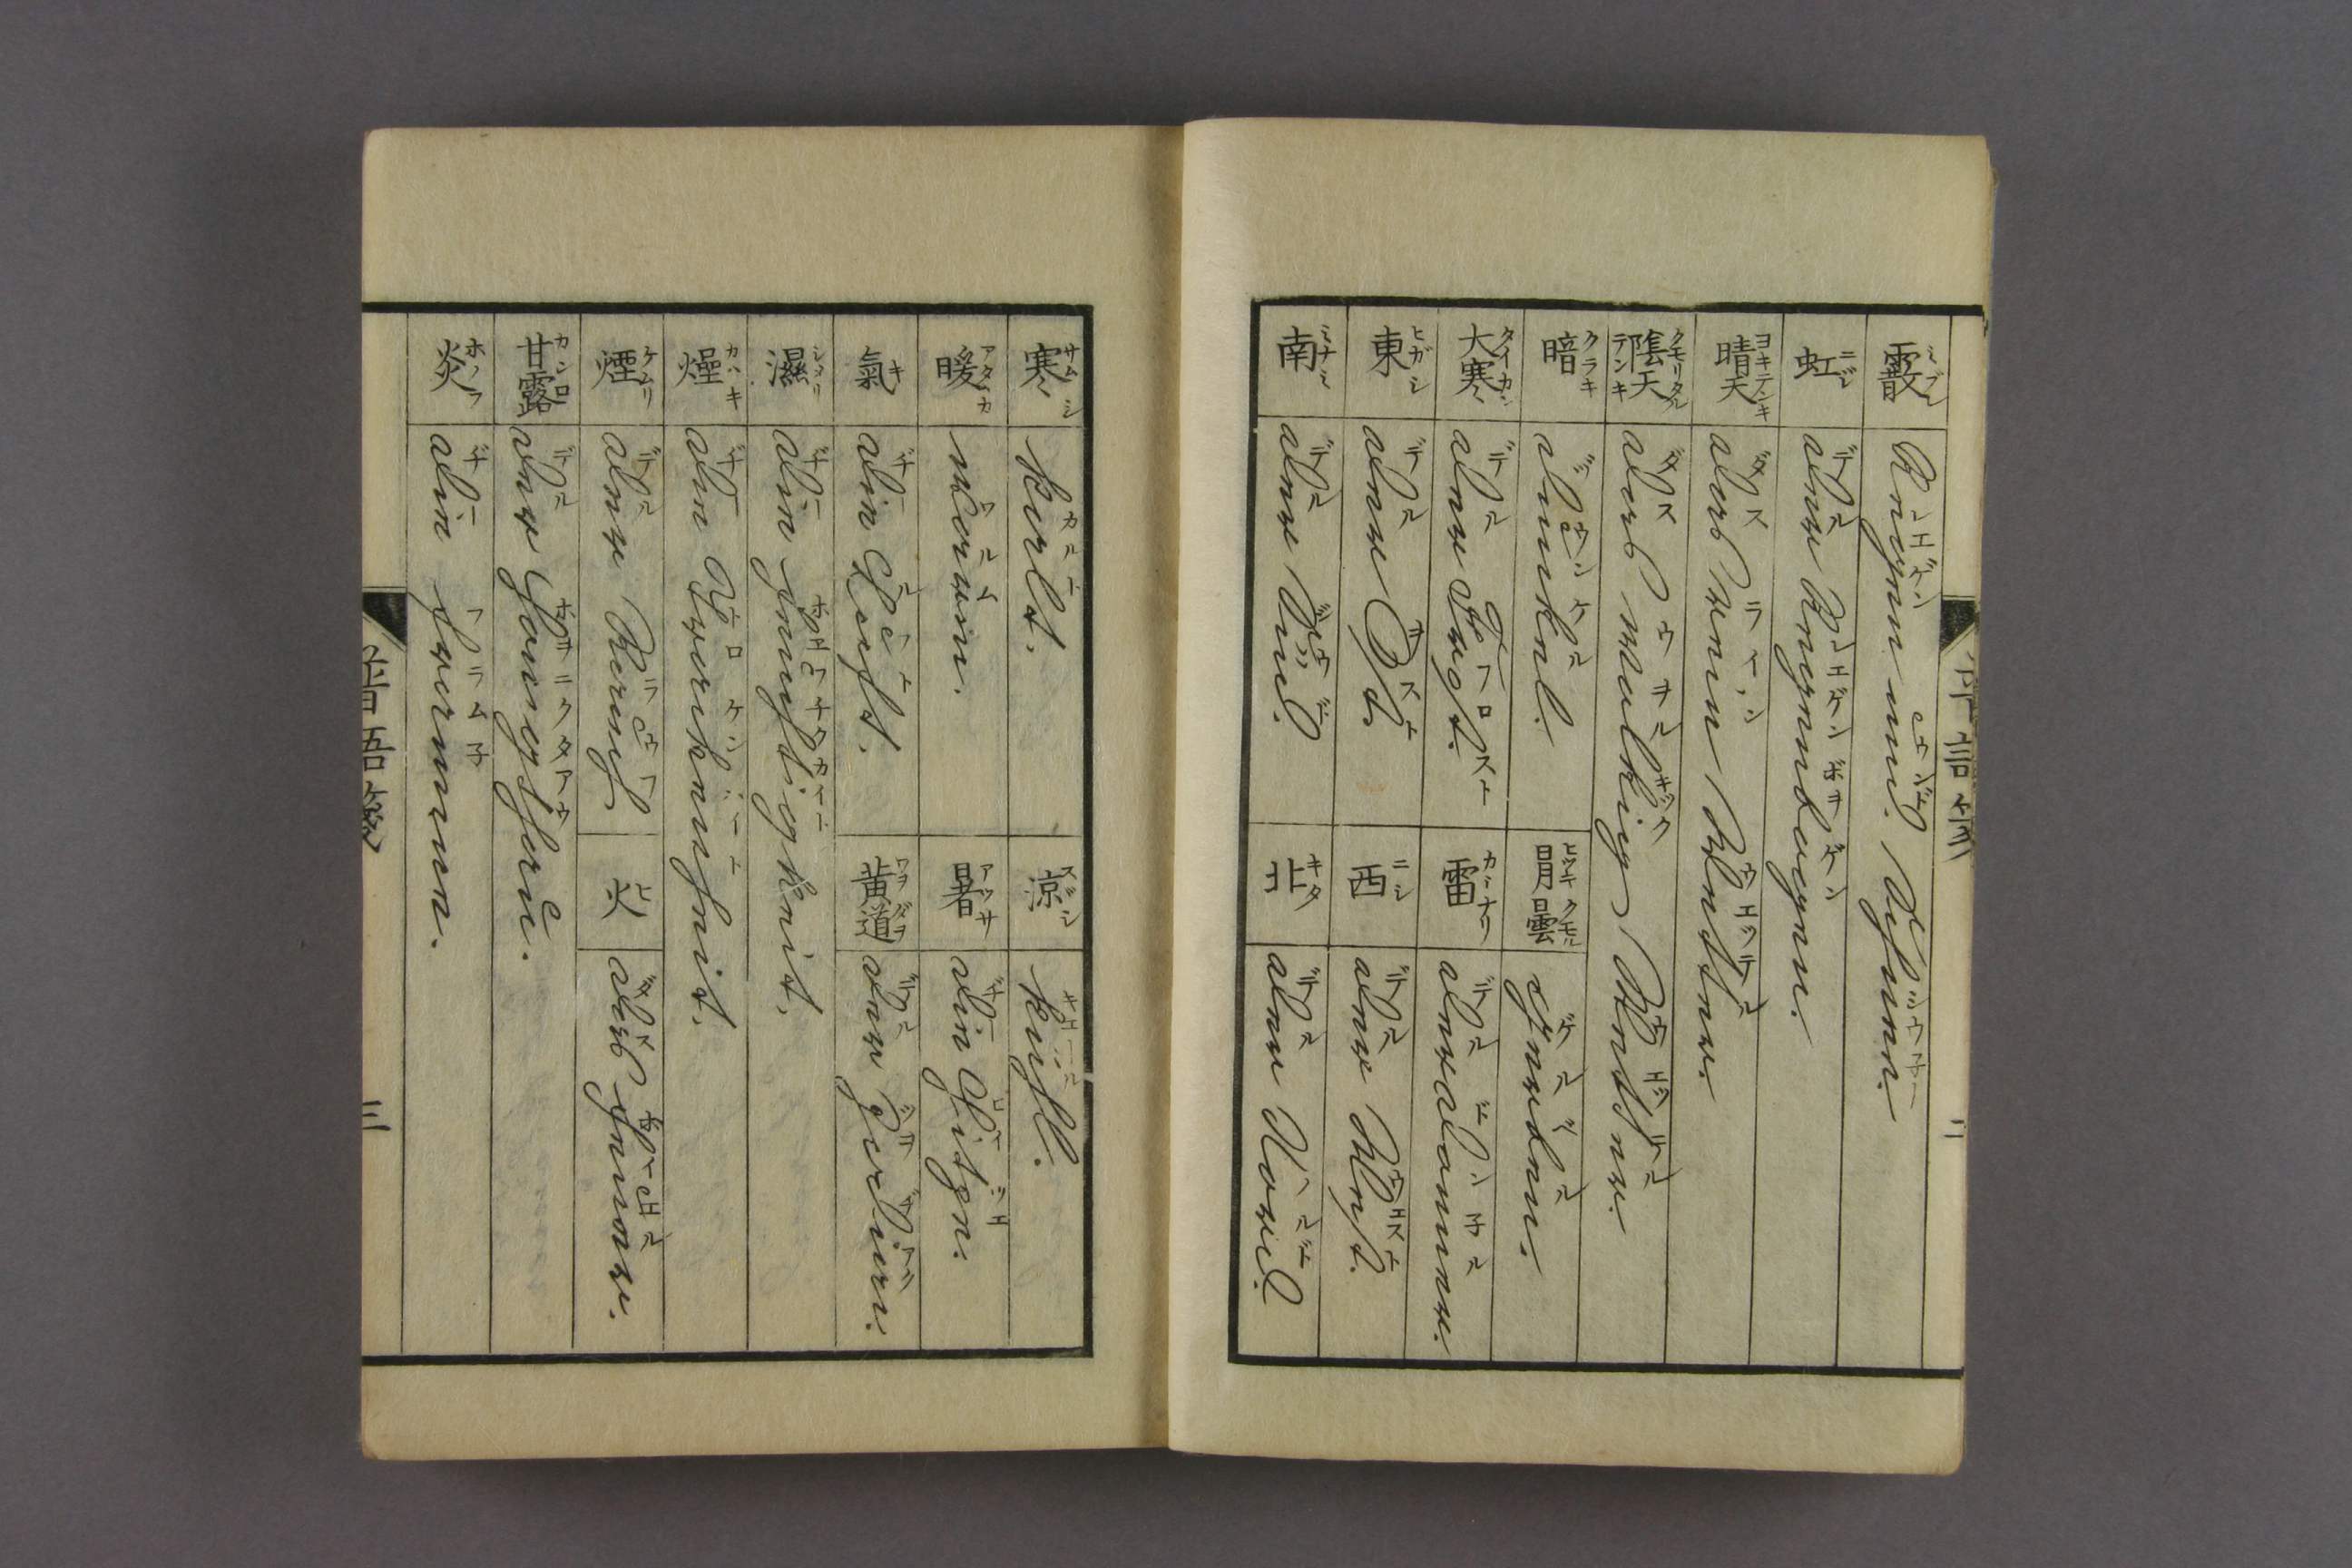 霰 ミゾレ
Regen und Schnee.
レエゲン ウント シウ子ー
虹 ニジ
der Regenbogen.
デル レエゲンボヲゲン
晴天 ヨキテンキ
das reine Wetter.
ダス ライン ウエッテル
陰天 クモリタルテンキ
das wolkig Wetter.
ダス ウヲルキック ウエッテル
暗 クラキ
dunkel.
ヅウンケル
日月曇 ヒツキクモル
大寒 タイカン
der Frost.
デル フロスト
雷 カミナリ
der Donner.
デル ドンネル
東 ヒガシ
der Ost.
デル ヲスト
西 ニシ
der West.
デル ウエスト
南 ミナミ
der Süd.
デル
北 キタ
der Nord.
デル ノルド
二
寒 サムシ
kalt.
カルト
涼 スヾシ
kuhl.
キエール
暖 アタヽカ
warm.
ワルム
暑 アツサ
die Hitze.
ヂー ヒイツエ
氣 キ
die Luft.
ヂー ルウフト
黄道 ワヲダヲ
der
デル
濕 シメリ
die Feuchtigkeit.
ヂー
燥 カハキ
die Trockenheit.
ヂー トロケンハイト
煙 ケムリ
der Rauch.
デル ラウフ
火 ヒ
das Feuer.
ダス
甘露 カンロ
der Honigthau.
デル ホヲニクタアウ
炎 ホノフ
die Flamme.
ヂー フラム子
普語箋
三